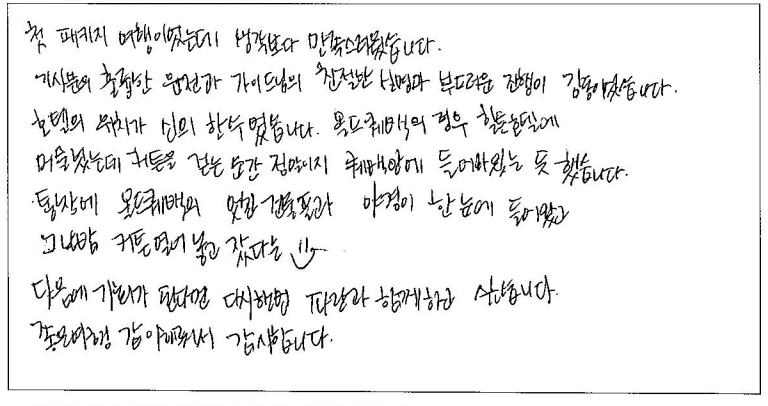 첫 패키지 여행이었는데 생각보다 만족스러웠습니다.
기사분의 훌륭한 운전과 가이드님의 친절한 설명과 부드러운 진행이 감동이었습니다.
호텔의 위치가 신의 한수였습니다. 올드퀘백의 경우 힐튼호텔에
머물렀는데 커튼을 걷는 순간 정말이지 퀘백안에 들어와있는 듯 했습니다.
통창에 올드퀘백의 멋진 건물들과 야경이 한눈에 들어왔고
그날밤 커튼 열어놓고 잤다는
다음에 기회가 된다면 다시한번 파랑과 함께하고 싶습니다.
좋은여행 감사합니다.